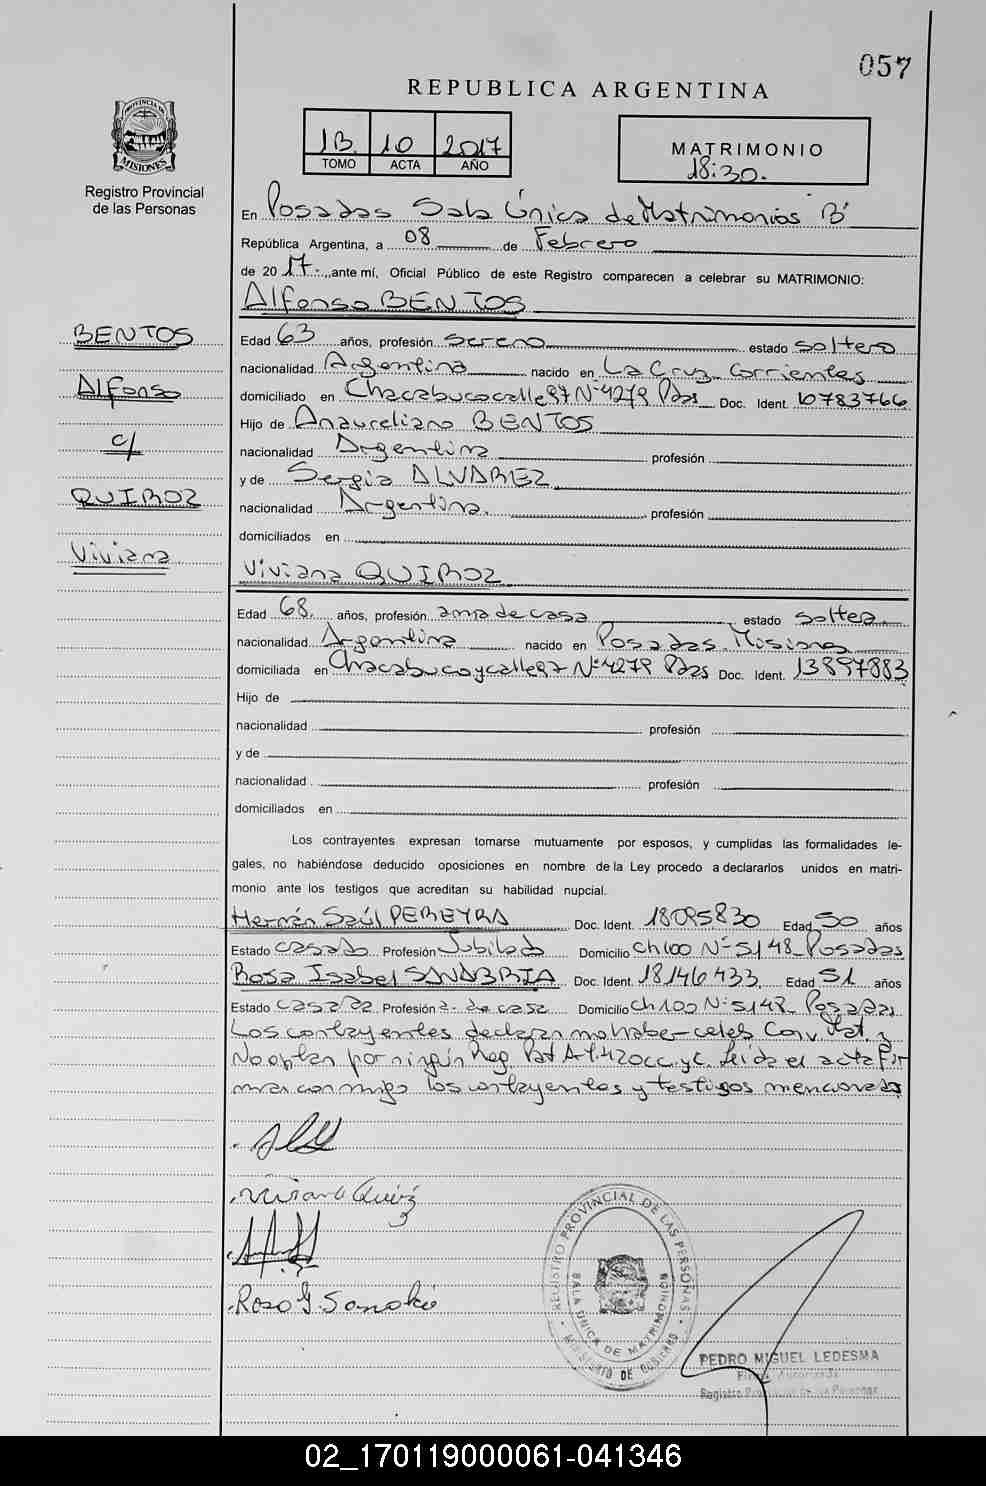 057
REPUBLICA ARGENTINA
PROVINCIA DE
MISIONES
Registro Provincial
de las Personas
1B. 10 2017
TOMO ACTA AÑO
MATRIMONIO
18:30.
En Posadas Sala Única de Matrimonios "B"
República Argentina, a 08 de Febrero
de 20 17. ,ante mí, Oficial Público de este Registro comparecen a celebrar su MATRIMONIO:
Alfonso BENTOS
BENTOS
Alfonso
c/
QUIROZ
Viviana
Edad 63 años, profesión Sereno estado soltero
nacionalidad Argentina nacido en La Cruz Corrientes
domiciliado en Chacabuco calle 97 Nº 4279 Pdas Doc. Ident. 10783766
Hijo de Anaureliano BENTOS
nacionalidad Argentina profesión
y de Sergia ALVAREZ
nacionalidad Argentina. profesión
domiciliados en
Viviana QUIROZ
Edad 68. años, profesión ama de casa estado soltea.
nacionalidad Argentina nacido en Posadas. Misiones
domiciliada en Chacabuco y calle 97 Nº 4279 Pdas Doc. Ident. 13897883
Hijo de
nacionalidad profesión
y de
nacionalidad profesión
domiciliados en
Los contrayentes expresan tomarse mutuamente por esposos, y cumplidas las formalidades le-
gales, no habiéndose deducido oposiciones en nombre de la Ley procedo a declararlos unidos en matri-
monio ante los testigos que acreditan su habilidad nupcial.
Hernán Saúl PEREYRA Doc. Ident. 18095830 Edad 50 años
Estado casado Profesión Jubilado Domicilio ch 100 Nº 5148_ Posadas
Rosa Isabel SANABRIA Doc. Ident. 18146433. Edad 51 años
Estado casada Profesión a. de casa Domicilio ch 100 Nº 5148_ Posadas
Los contrayentes declaran no haber celeb Conv. Mat. y
No optan por ningún Reg. Pat Art. 420 cc. y c. leida el acta Fir
man conmigo los contrayentes y testigos mencionados
Viviana Quiroz
REGISTRO PROVINCIAL DE LAS PERSONAS
SALA UNICA DE MATRIMONIOS
MINISTERIO DE GOBIERNO
PEDRO MIGUEL LEDESMA
Firma Autorizada
Registro Provincial de las Personas
02_170119000061-041346